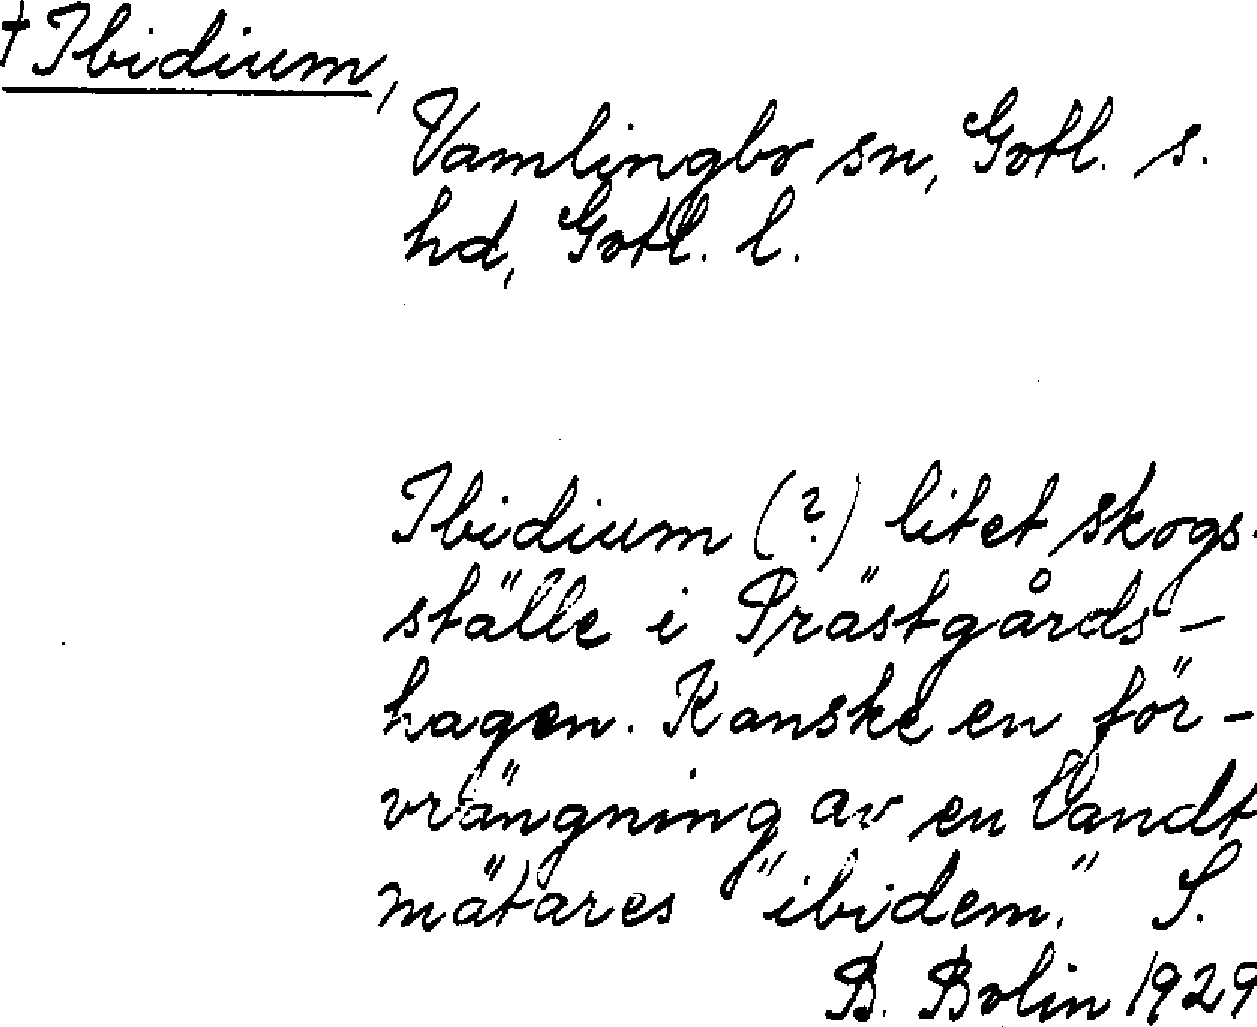 † Ibidium,
Vamlingbo sn, Gotl. s.
hd, Gotl. l.
Ibidium (?) litet skogs-
ställe i Prästgårds-
hagen. Kanske en för-
vrängning av en landt
mätares "ibidem." S.
B. Bolin 1929